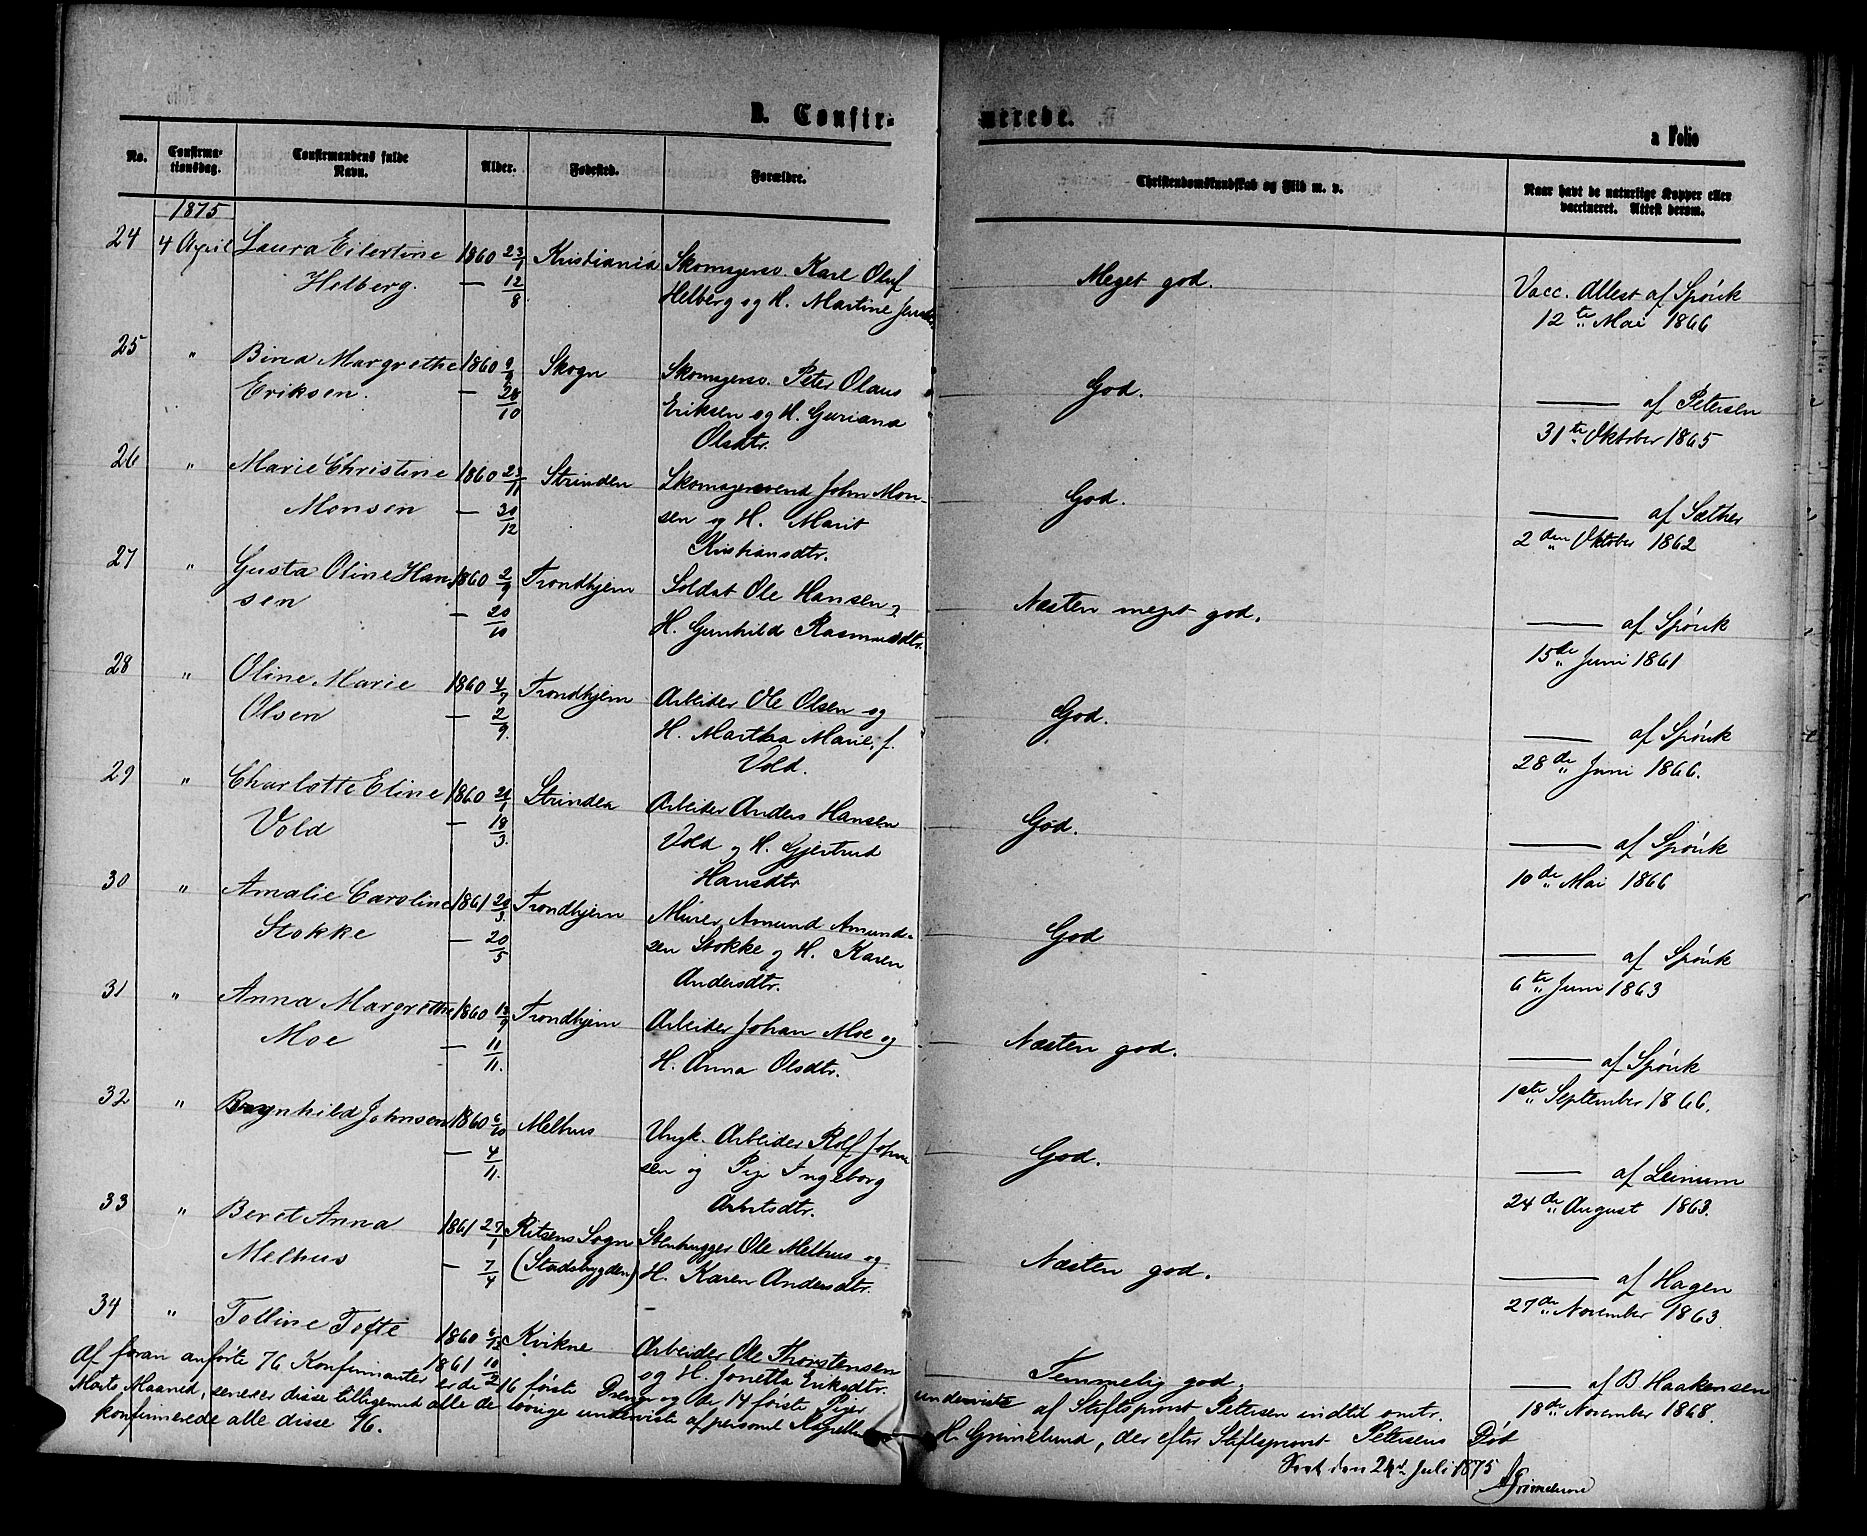 B. Confir-
merede.
a Folio
No.
Confirma-
tionsdag.
Confirmandens fulde
Navn.
Alder.
Fødested.
Forældre.
Christendomskundskab og Flid m. v.
Naar havt de naturlige Kopper eller
vaccineret. Attest derom.
1875
24 4 April Laura Eilertine 1860 23/1 Kristiania Skomagersv. Karl Oluf Meget god. Vacc. Attest af Spörck
Helberg. — 12/8 Helberg og H. Martine 12te Mai 1866
25 " Bina Margrethe 1860 Skogn Skomagersv. Peter Olaus God. — af Petersen
Eriksen. — 26/10 Eriksen og H. Guriana 31te Oktober 1865
Olsdtr.
26 " Marie Christine 1860 23/11 Strinden Skomagersvend John Mon- God. — af Sæther
Monsen — 30/12 sen og H. Marit 2den Oktober 1862
Kristiansdtr.
27 " Gusta Oline Han- 1860 2/9 Trondhjem Soldat Ole Hansen og Næsten meget god. — af Spörck
sen — 20/10 H. Gunhild Rasmusdtr. 15de Juni 1861
28 " Oline Marie 1860 4/7 Trondhjem Arbeider Ole Olsen og God. — af Spörck
Olsen — 2/9. H. Martha Marie, f. 28de Juni 1866.
Vold.
29 " Charlotte Eline 1860 Strinden Arbeider Anders Hansen God. — af Spörck
Vold — 18/3. Vold og H. Gjertrud 10de Mai 1866
Hansdtr
30 " Amalie Caroline 1861 Trondhjem Murer Amund Amund- God — af Spörck
Stokke — 20/5 sen Stokke og H. Karen 6te Juni 1863
Andersdtr.
31 " Anna Margrethe 1860 Trondhjem Arbeider Johan Moe og Næsten god. — af Spörck
Moe — 11/11. H. Anna Olsdtr. 1ste September 1866.
32 " Brynhild Johnsen 1860 6/10 Melhus Ungk. Arbeider Rolf John- God. — af Leinum
— 4/11. sen og Pige Ingeborg 24de August 1863.
33 " Beret Anna 1861 27/1 Ritsens Sogn Stenhugger Ole Melhus og Næsten god. — af Hagen
Melhus — 7/4 (Stadsbygden) H. Karen Andersdtr. 27de November 1863.
34 " Tolline Tofte 1860 6/12 Kvikne Arbeider Ole Thorstensen Temmelig god. — af B Haakensen
1861 10/2 og H. Jonetta Eriksdtr. 18de November 1868.
Af foran anførte 76 Konfirmanter er de 16 første Drenge og de 14 første Piger underviste af Stiftsprovst Petersen indtil omtr.
Marts Maaned, senere disse tilligemed alle de øvrige underviste af personel Kapellan H. Grimelund, der efter Stiftsprovst Petersens Død
konfirmerede alle disse 76. den 24d. Juli 1875
Grimelund